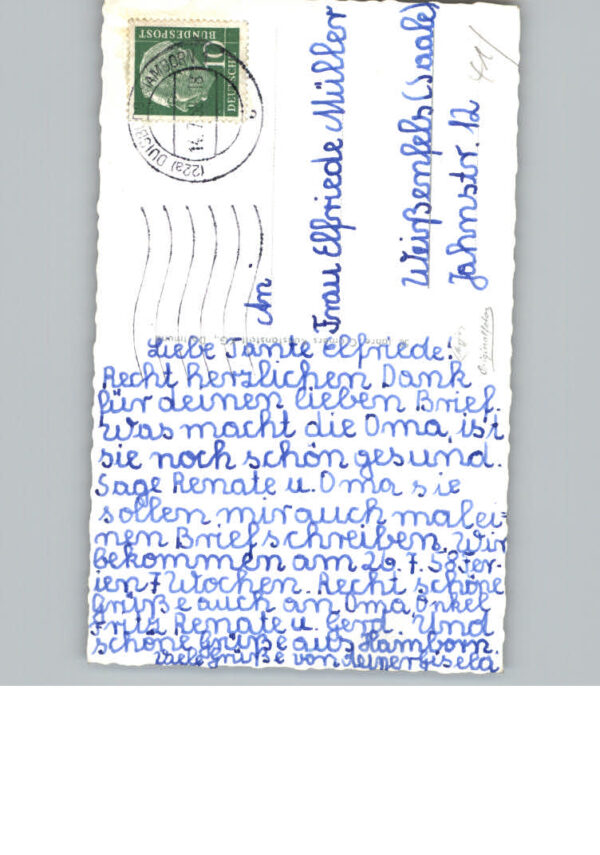 10
DEUTSCHE
BUNDESPOST
(22a) DUISBURG-HAMBORN
14.7
An
Frau Elfriede Müller
Weißenfels (Saale)
Jahnstr. 12
Liebe Tante Elfriede!
Recht herzlichen Dank
für deinen lieben Brief.
Was macht die Oma, ist
sie noch schön gesund.
Sage Renate u. Oma sie
sollen mir auch mal ei=
nen Brief schreiben. Wir
bekommen am 26.7.58 Fer-
ien 7 Wochen. Recht schöne
Grüße auch an Oma, Onkel
Fritz Renate u. Gerd. Und
schöne Grüße aus Hamborn.
Viele Grüße von deiner Gisela
Originalfoto